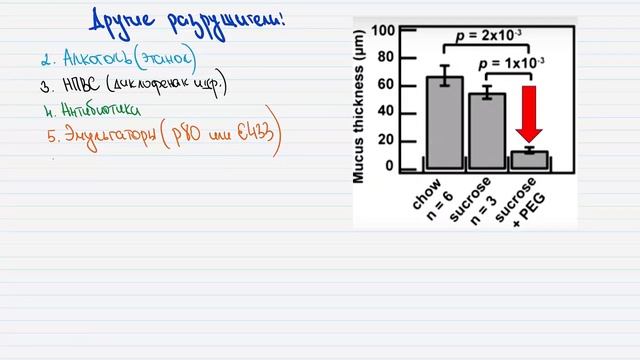 Другие разрушители!
2. Алкоголь (этанол)
3. НПВС (диклофенак и др.)
4. Антибиотики
5. Эмульгаторы (p80 или E433)
Mucus thickness (µm)
100
80
60
40
20
0
p = 2x10⁻³
p = 1x10⁻³
chow
n = 6
sucrose
n = 3
sucrose
+ PEG